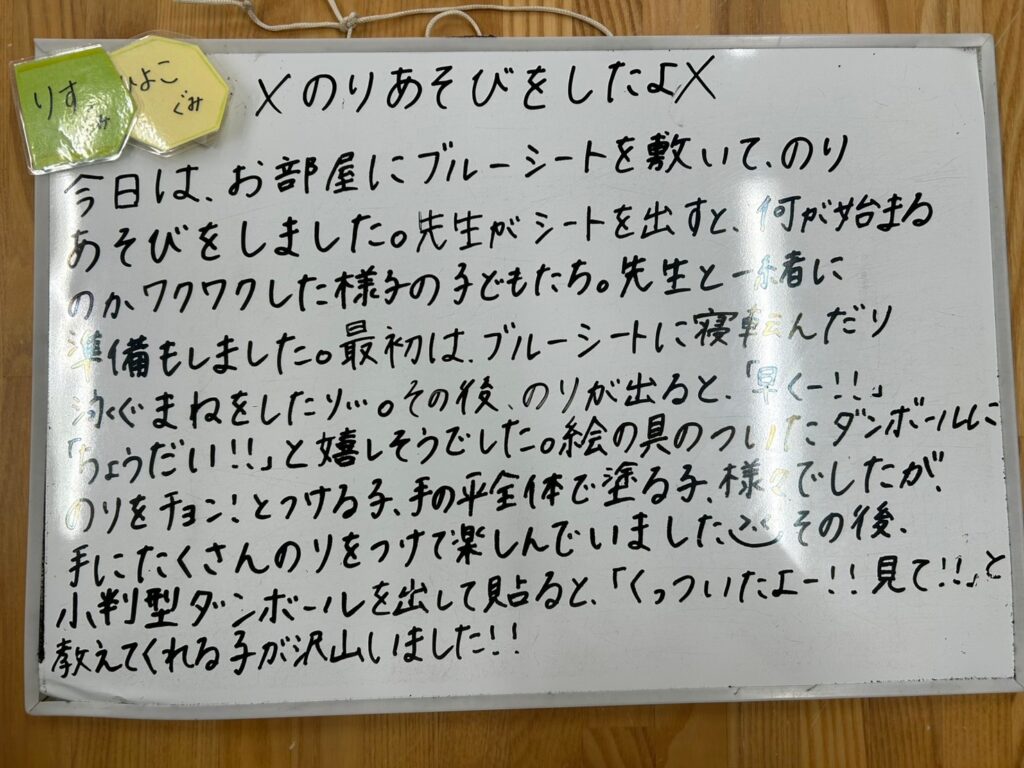 りす
ひよこ
ぐみ
×のりあそびをしたよ×
今日は、お部屋にブルーシートを敷いて、のり
あそびをしました。先生がシートを出すと、何が始まる
のか、ワクワクした様子の子どもたち。先生と一緒に
準備もしました。最初は、ブルーシートに寝転んだり
泳ぐまねをしたり…。その後、のりが出ると、「早くー!!」
「ちょうだい!!」と嬉しそうでした。絵の具のついたダンボールに
のりをチョン!とつける子、手の平全体で塗る子、様々でしたが、
手にたくさんのりをつけて楽しんでいました その後、
小判型ダンボールを出して貼ると、「くっついたよー!!見て!!」と
教えてくれる子が沢山いました!!